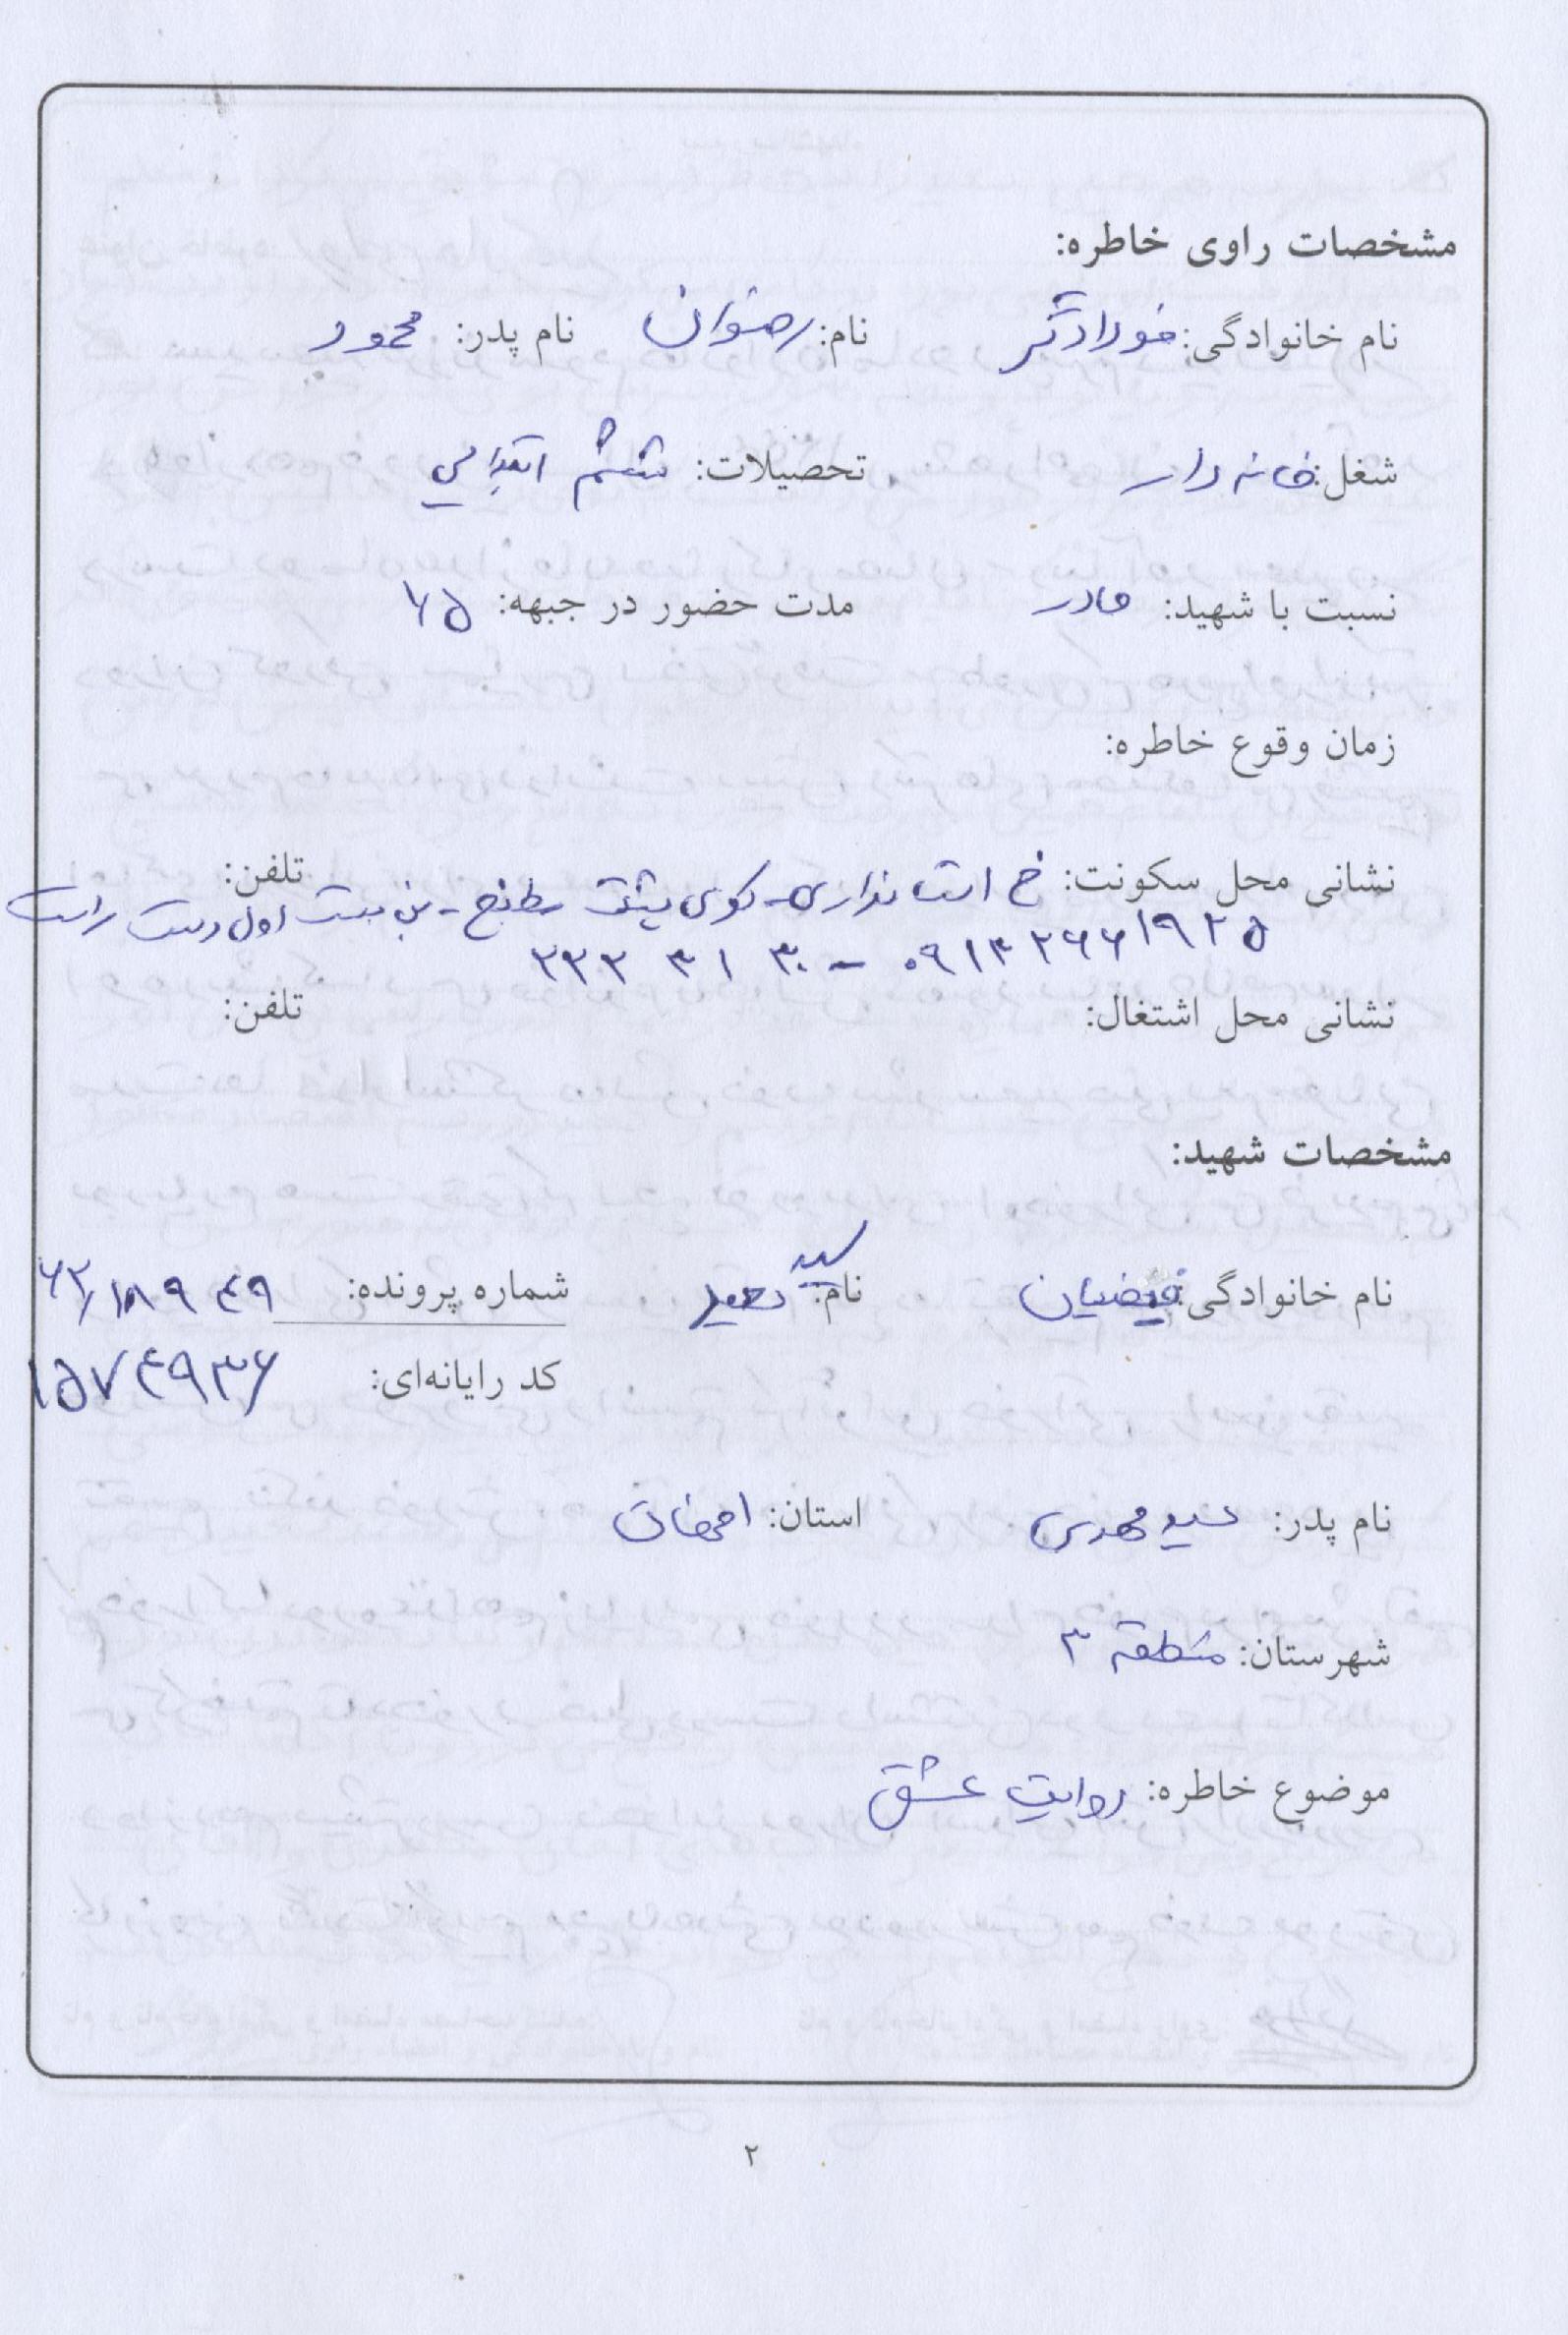 مشخصات راوی خاطره:
نام خانوادگی: فولادگر نام: رضوان نام پدر: محمود
شغل: خانه دار تحصیلات: ششم ابتدایی
نسبت با شهید: مادر مدت حضور در جبهه: ۶۵
زمان وقوع خاطره:
نشانی محل سکونت: خ استانداری - کوی پشت مطبخ - بن بست اول دست راست تلفن:
۰۹۱۳۲۶۶۱۹۲۵ - ۲۲۲۳۱۳۰
نشانی محل اشتغال: تلفن:
مشخصات شهید:
نام خانوادگی: فیضیان نام: سید سعید شماره پرونده: ۶۲/۱۸۹۴۹
کد رایانه‌ای: ۱۵۷۴۹۳۶
نام پدر: سید مهدی استان: اصفهان
شهرستان: منطقه ۳
موضوع خاطره: روایت عشق
۲